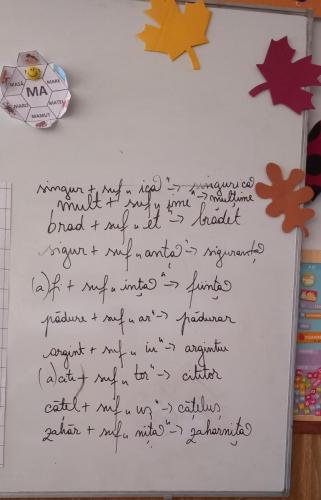 MASĂ
MARE
MA
MARO
MATEI
MAMUT
singur + suf „ică" -> singurică
mult + suf „ime" -> mulțime
brad + suf „et" -> brădet
sigur + suf „anță" -> siguranță
(a) fi + suf „ință" -> ființă
pădure + suf „ar" -> pădurar
argint + suf „iu" -> argintiu
(a) citi + suf „tor" -> cititor
cățel + suf „uș" -> cățeluș
zahăr + suf „niță" -> zaharniță